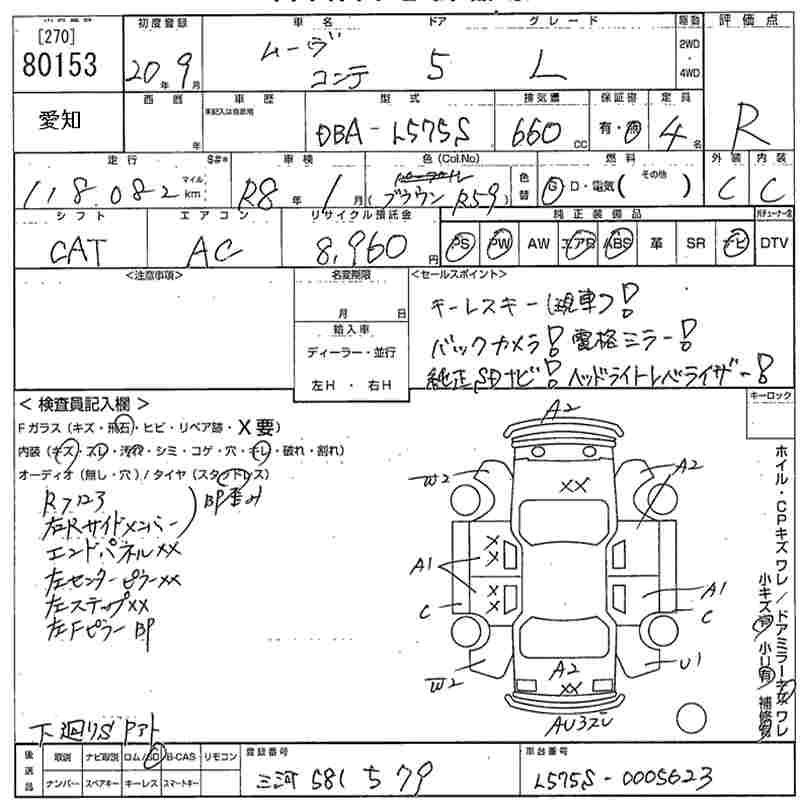 [270]
80153
愛知
初度登録
20年9月
車名
ムーヴ
コンテ
ドア
5
グレード
L
駆動
2WD
・
4WD
評価点
R
西暦
年
車歴
未記入は自家用
型式
DBA-L575S
排気量
660cc
保証書
有・無
定員
4名
走行
118.082
マイル
km
S#*
車検
R8年1月
色(Col.No)
ブラウン R59
色替
燃料
G・D・電気( その他 )
外装
C
内装
C
シフト
CAT
エアコン
AC
リサイクル預託金
8,960円
純正装備品
PS PW AW エアB ABS 革 SR ナビ
DTV
<注意事項>
名変期限
月 日
輸入車
ディーラー・並行
左H ・ 右H
<セールスポイント>
キーレスキー(現車)!
バックカメラ! 電格ミラー!
純正SDナビ! ヘッドライトレベライザー!
キーロック
<検査員記入欄>
Fガラス(キズ・飛石・ヒビ・リペア跡・X要)
内装(キズ・スレ・汚れ・シミ・コゲ・穴・キレ・破れ・割れ)
オーディオ(無し・穴)/タイヤ(スタッドレス)
Rフロア
左Rサイドメンバー
BP歪み
エンドパネルXX
左センターピラーXX
左ステップXX
左Fピラー BP
下廻りS Pアト
A2
W2
A2
XX
XX
A1
XX
A1
C
C
W2
A2
XX
U1
AU3XU
ホイル・CPキズ ワレ/ドアミラーキズ ワレ
小キズ有 小U有 補修跡
後送品
取説 ナビ取説 ロム/SD B-CAS リモコン
ナンバー スペアキー キーレス スマートキー
登録番号
三河 581 ち 79
車台番号
L575S-0005623